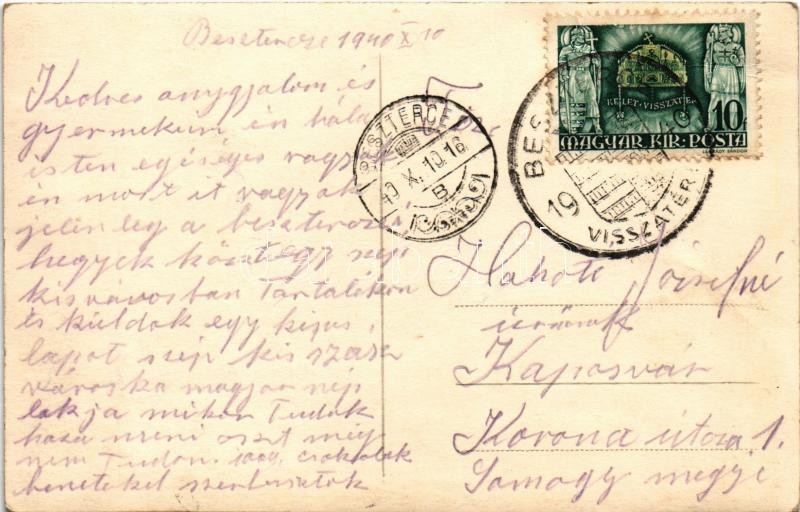 Besztercze 1940 X 10
Kedves anygyalom és
gyermekeim én hála
isten egéséges vagyok
én most it vagyok
jelenleg a besztercei
hegyek közt egy szép
kisvárosban Tartalékon
és küldök egy kis
lapot szép kis szász
városka magyar nép
lakja mikor Tudok
haza meni aszt még
nem Tudom. csokolok
beneteket szerbusztok
BESZTERCE
40 X. 10. 16
B
KELET VISSZATÉR
10f
MAGYAR KIR. POSTA
LÉGRÁDY SÁNDOR
BES
19
VISSZATÉR
Józsefné
urnőnek
Kaposvár
Korona útca 1.
Somogy megye